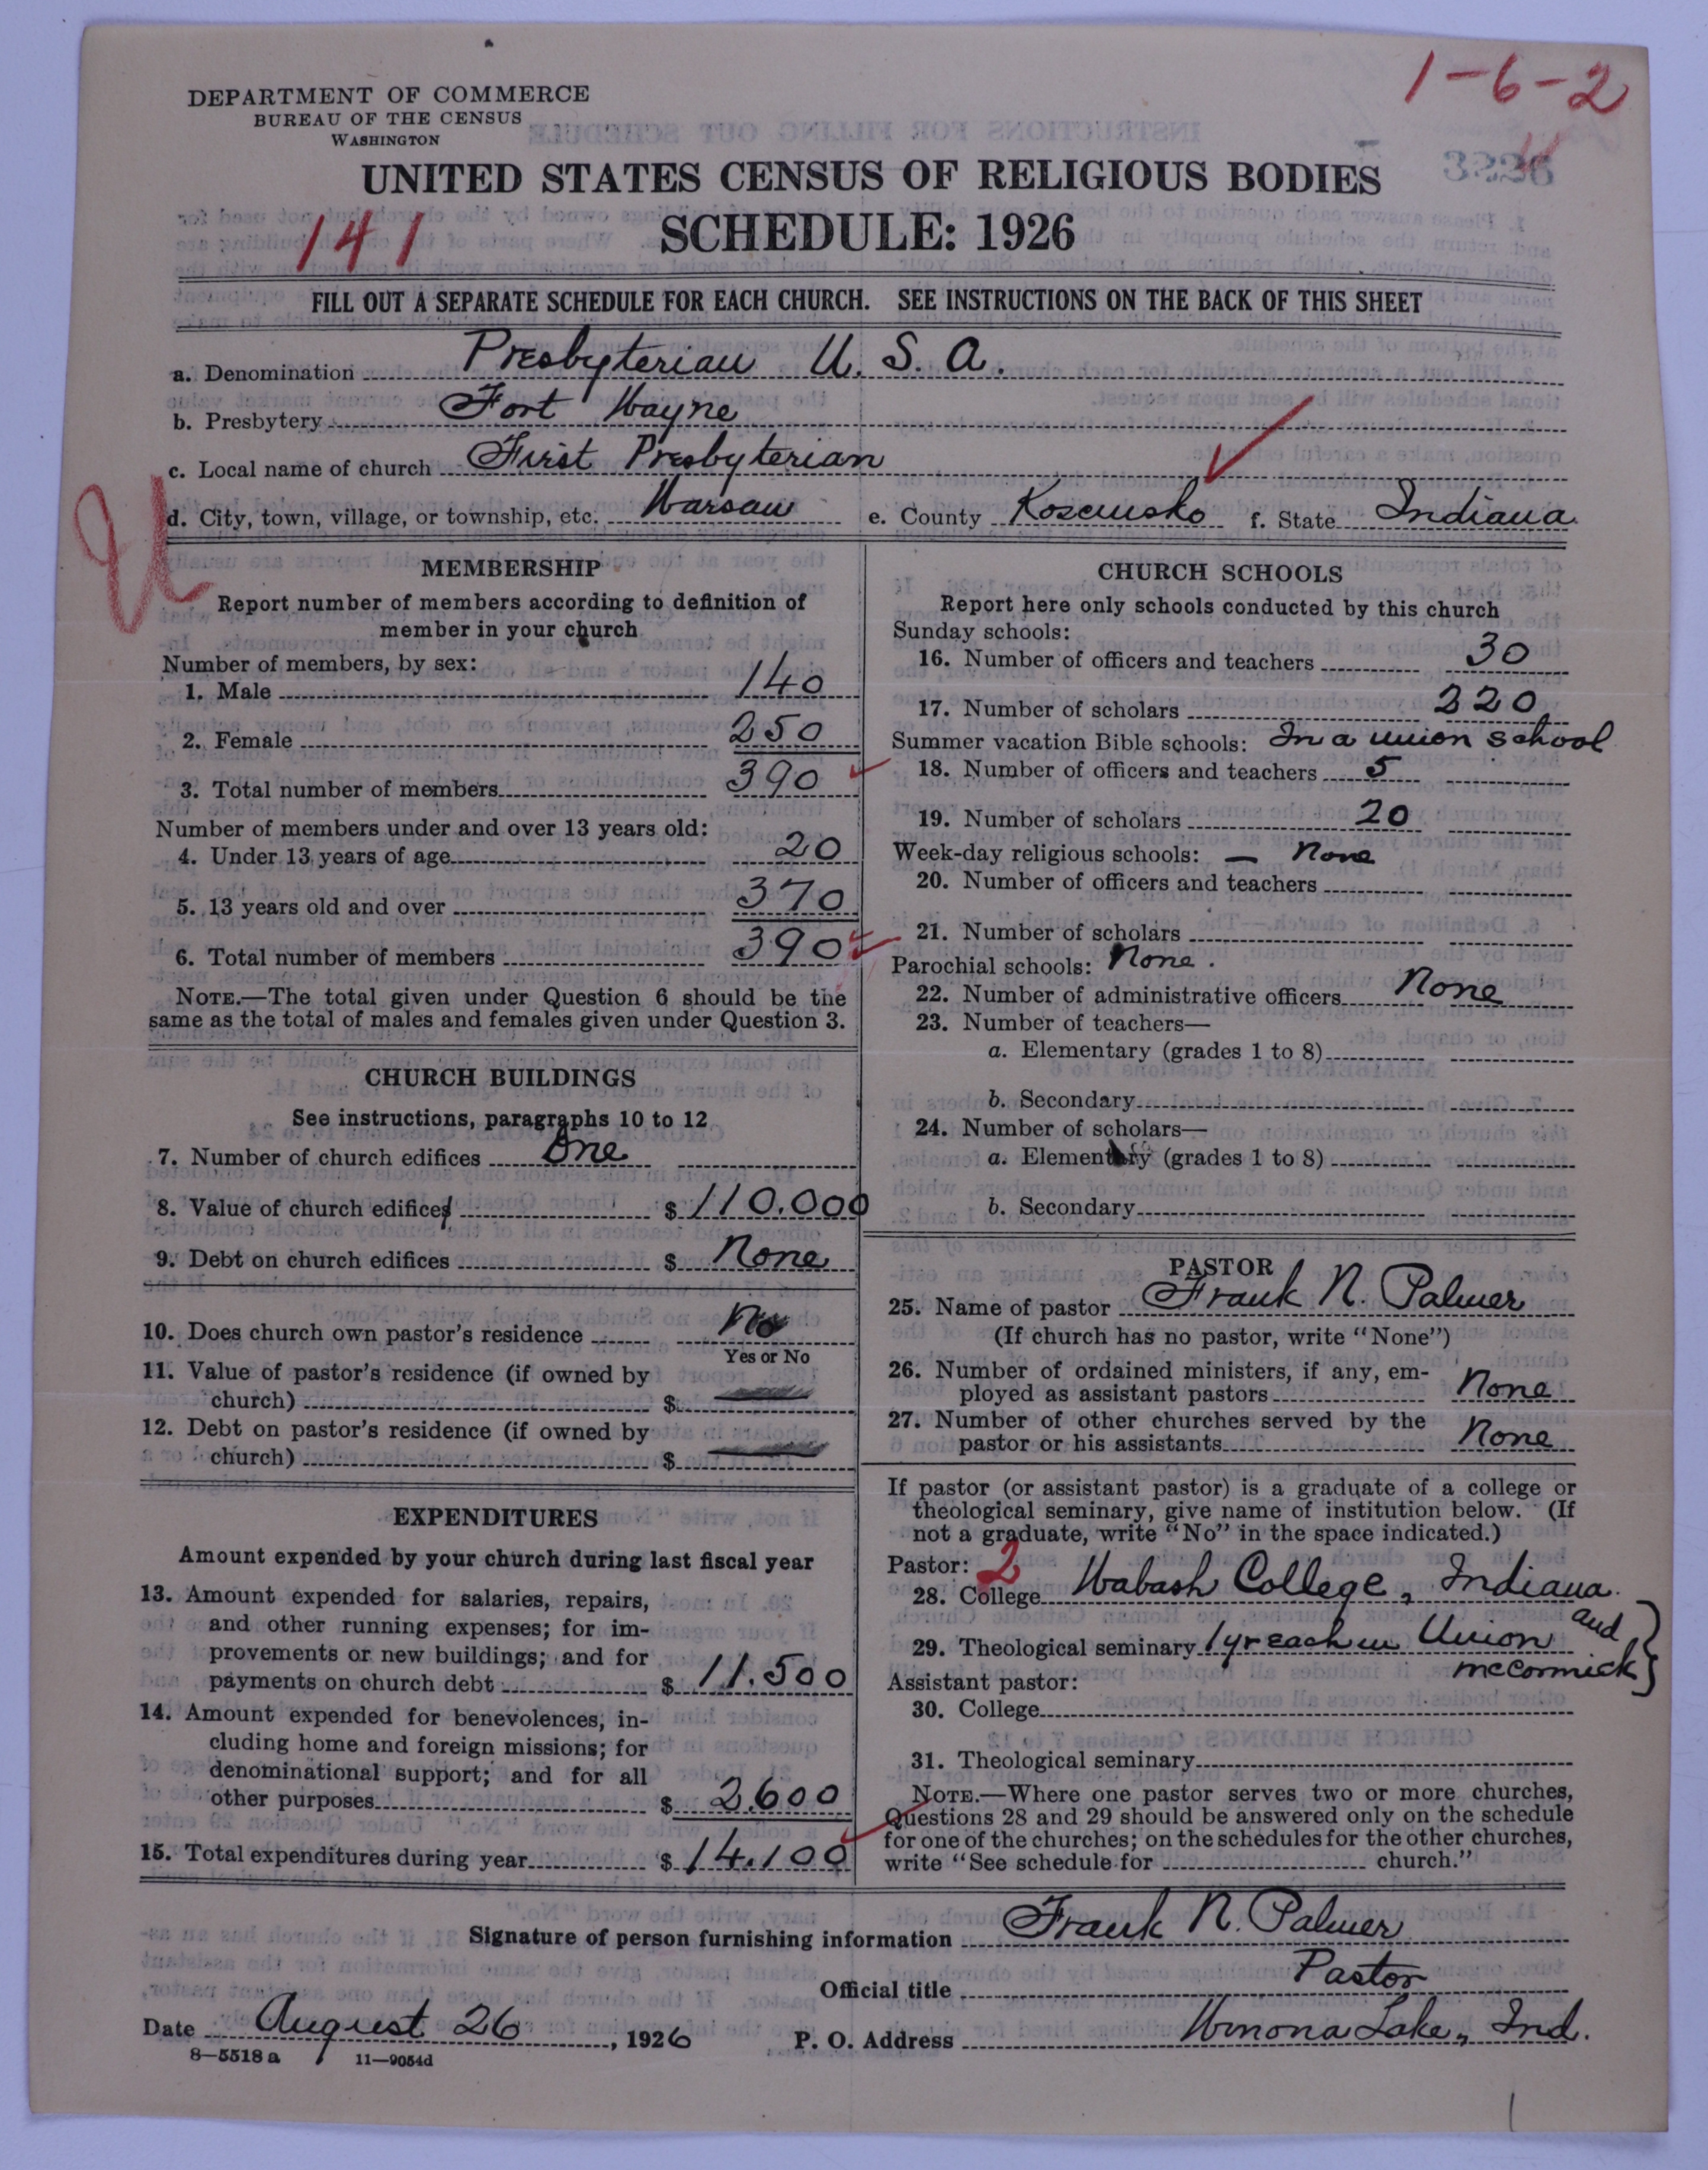 1-6-2
DEPARTMENT OF COMMERCE
BUREAU OF THE CENSUS
WASHINGTON
3226
UNITED STATES CENSUS OF RELIGIOUS BODIES
141
SCHEDULE: 1926
FILL OUT A SEPARATE SCHEDULE FOR EACH CHURCH. SEE INSTRUCTIONS ON THE BACK OF THIS SHEET
a. Denomination Presbyterian U. S. A.
b. Presbytery Fort Wayne
c. Local name of church First Presbyterian
U
d. City, town, village, or township, etc. Warsaw e. County Kosciusko f. State Indiana
MEMBERSHIP
Report number of members according to definition of
member in your church
Number of members, by sex:
1. Male 140
2. Female 250
3. Total number of members 390
Number of members under and over 13 years old:
4. Under 13 years of age 20
5. 13 years old and over 370
6. Total number of members 390
NOTE.—The total given under Question 6 should be the
same as the total of males and females given under Question 3.
CHURCH BUILDINGS
See instructions, paragraphs 10 to 12
7. Number of church edifices One
8. Value of church edifices $ 110.000
9. Debt on church edifices $ None
10. Does church own pastor's residence No
Yes or No
11. Value of pastor's residence (if owned by
church) $
12. Debt on pastor's residence (if owned by
church) $
EXPENDITURES
Amount expended by your church during last fiscal year
13. Amount expended for salaries, repairs,
and other running expenses; for im-
provements or new buildings; and for
payments on church debt $ 11.500
14. Amount expended for benevolences, in-
cluding home and foreign missions; for
denominational support; and for all
other purposes $ 2.600
15. Total expenditures during year $ 14.100
CHURCH SCHOOLS
Report here only schools conducted by this church
Sunday schools:
16. Number of officers and teachers 30
17. Number of scholars 220
Summer vacation Bible schools: In a union school
18. Number of officers and teachers 5
19. Number of scholars 20
Week-day religious schools: — None
20. Number of officers and teachers
21. Number of scholars
Parochial schools: None.
22. Number of administrative officers None
23. Number of teachers—
a. Elementary (grades 1 to 8)
b. Secondary
24. Number of scholars—
a. Elementary (grades 1 to 8)
b. Secondary
PASTOR
25. Name of pastor Frank N. Palmer
(If church has no pastor, write "None")
26. Number of ordained ministers, if any, em-
ployed as assistant pastors None
27. Number of other churches served by the
pastor or his assistants None
If pastor (or assistant pastor) is a graduate of a college or
theological seminary, give name of institution below. (If
not a graduate, write "No" in the space indicated.)
Pastor: 2
28. College Wabash College, Indiana
29. Theological seminary 1 yr each in Union and
McCormick
Assistant pastor:
30. College
31. Theological seminary
NOTE.—Where one pastor serves two or more churches,
Questions 28 and 29 should be answered only on the schedule
for one of the churches; on the schedules for the other churches,
write "See schedule for church."
Signature of person furnishing information Frank N. Palmer
Official title Pastor
Date August 26, 1926 P. O. Address Winona Lake, Ind.
8—5518 a 11—9054d